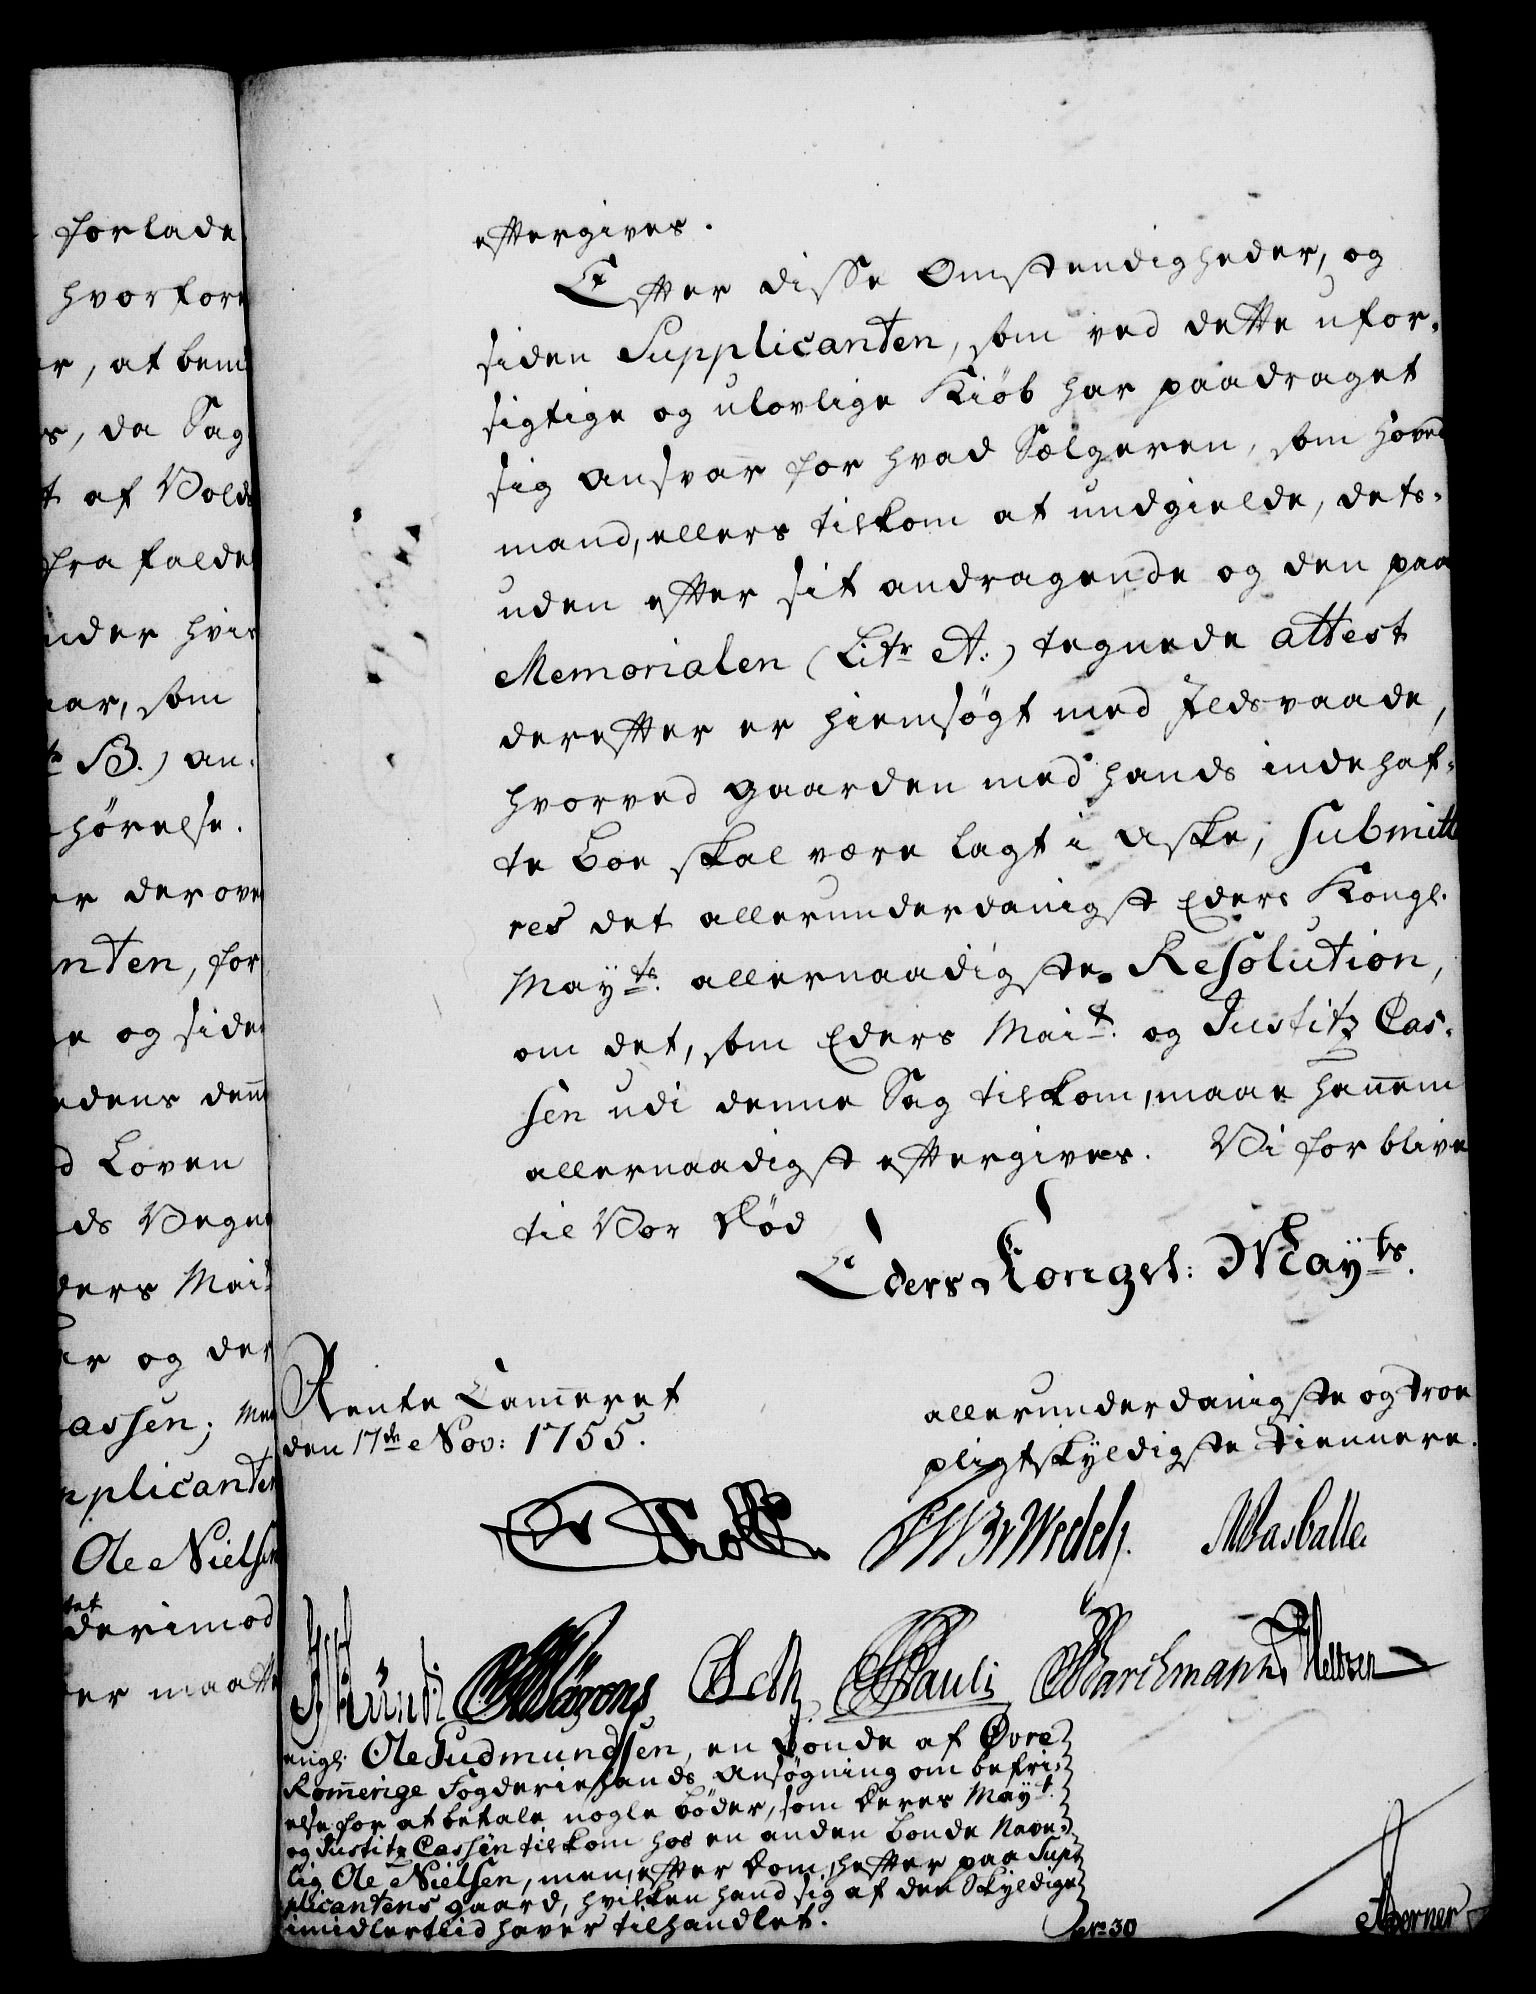 forlade
hvorfore
er, at bem
s, da Sag
t af Volds
fra falde
nder hvis
aar, som
B.) an-
hørelse.
er derove
nten, for
e og side
edens denn
d Loven
ds Vegne
ders Mait
ar og der
assen; Men
pplicanten
Ole Nielsen
tet
derimod
er maatte
eftergives.
Efter disse Omstendigheder, og
siden Supplicanten, som ved dette ufor-
sigtige og ulovlige Kiøb har paadraget
sig ansvar for hvad Sælgeren, som Hoved
mand, ellers tilkom at undgielde, dets-
uden efter sit andragende og den paa
Memorialen (Litr A.) tegnede attest
derefter er hiemsøgt med Ildsvaade,
hvorved gaarden med hands indehaf-
te boe skal være lagt i Aske, submitte
res det allerunderdanigst Eders Kongl.
Mayts. allernaadigste Resolution,
om det, som Eders Mait. og Justitz Cas-
sen udi denne Sag tilkom, maae hannem
allernaadigst eftergives. Vi forblive
til Vor Død
Eders Kongel: Mayts.
Rente Cammeret
den 17de Nov: 1755.
allerunderdanigste og troe
pligtskyldigste tiennere.
Holtzen
angl: Ole Gudmundsen, en bonde af Øvre
Romerige Fogderie hands Ansøgning om befri-
else for at betale nogle bøder, som Deres Mayt.
og Justitz Cassen tilkom hos en anden bonde Navn-
lig Ole Nielsen, men efter dom hefter paa Sup-
plicantens gaard, hvilken hand sig af den Skyldige
imidlertiid haver tilhandlet.
No 30